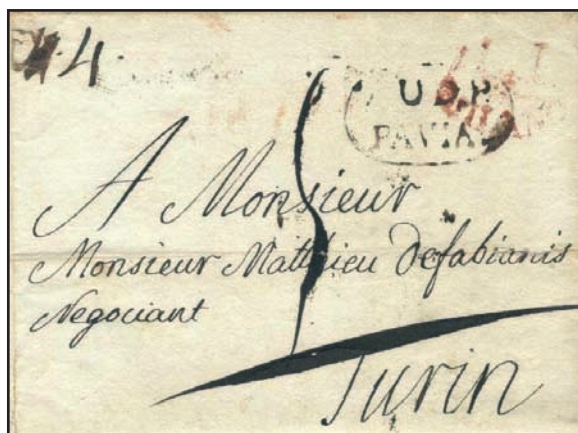 4.
U D P
PAVIA
A Monsieur
Monsieur Matthieu Defabianis
Negociant
Turin